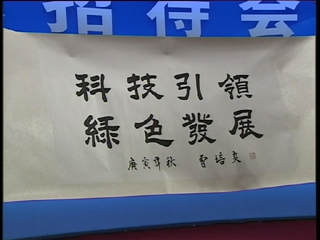 招待会
科技引領
綠色發展
庚寅年秋 曹培炎